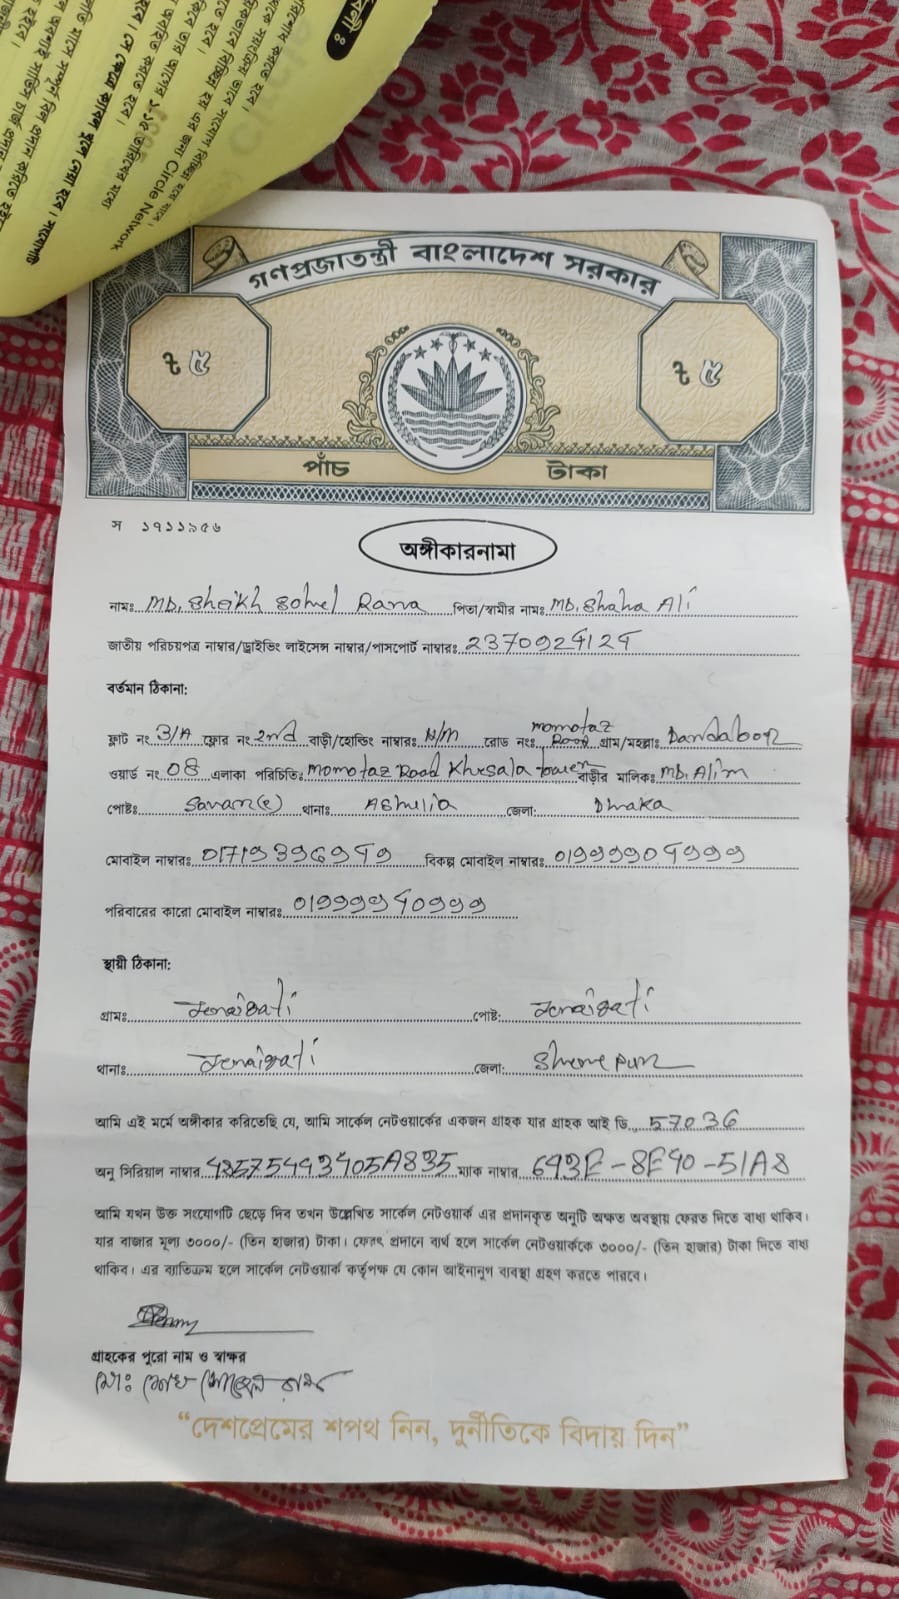 বলী :
গণপ্রজাতন্ত্রী বাংলাদেশ সরকার
৳ ৫
৳ ৫
পাঁচ টাকা
স ১৭১১৯৫৬
অঙ্গীকারনামা
নামঃ Md. Sheikh Sohel Rana পিতা/স্বামীর নাম: Md. Shaha Ali
জাতীয় পরিচয়পত্র নাম্বার/ড্রাইভিং লাইসেন্স নাম্বার/পাসপোর্ট নাম্বারঃ 2370924124
বর্তমান ঠিকানা:
ফ্লাট নং 3/A ফ্লোর নং 2nd বাড়ী/হোল্ডিং নাম্বারঃ N/M রোড নংঃ Momotaz Road গ্রাম/মহল্লাঃ Dandabor
ওয়ার্ড নং 08 এলাকা পরিচিতিঃ Momotaz Road tower বাড়ীর মালিকঃ Md. Alim
পোষ্টঃ Savar থানাঃ Ashulia জেলা: Dhaka
মোবাইল নাম্বারঃ 01719396949 বিকল্প মোবাইল নাম্বারঃ 01999904999
পরিবারের কারো মোবাইল নাম্বারঃ 01999940999
স্থায়ী ঠিকানা:
গ্রামঃ Jenaigati পোষ্ট: Jenaigati
থানাঃ Jenaigati জেলা: Sherepur
আমি এই মর্মে অঙ্গীকার করিতেছি যে, আমি সার্কেল নেটওয়ার্কের একজন গ্রাহক যার গ্রাহক আই ডি 57036
অনু সিরিয়াল নাম্বার 485754493405A835 ম্যাক নাম্বার 643E-8E40-51A8
আমি যখন উক্ত সংযোগটি ছেড়ে দিব তখন উল্লেখিত সার্কেল নেটওয়ার্ক এর প্রদানকৃত অনুটি অক্ষত অবস্থায় ফেরত দিতে বাধ্য থাকিব।
যার বাজার মূল্য ৩০০০/- (তিন হাজার) টাকা। ফেরৎ প্রদানে ব্যর্থ হলে সার্কেল নেটওয়ার্ককে ৩০০০/- (তিন হাজার) টাকা দিতে বাধ্য
থাকিব। এর ব্যতিক্রম হলে সার্কেল নেটওয়ার্ক কর্তৃপক্ষ যে কোন আইনানুগ ব্যবস্থা গ্রহণ করতে পারবে।
গ্রাহকের পুরো নাম ও স্বাক্ষর
মোঃ শেখ সোহেল রানা
“দেশপ্রেমের শপথ নিন, দুর্নীতিকে বিদায় দিন”